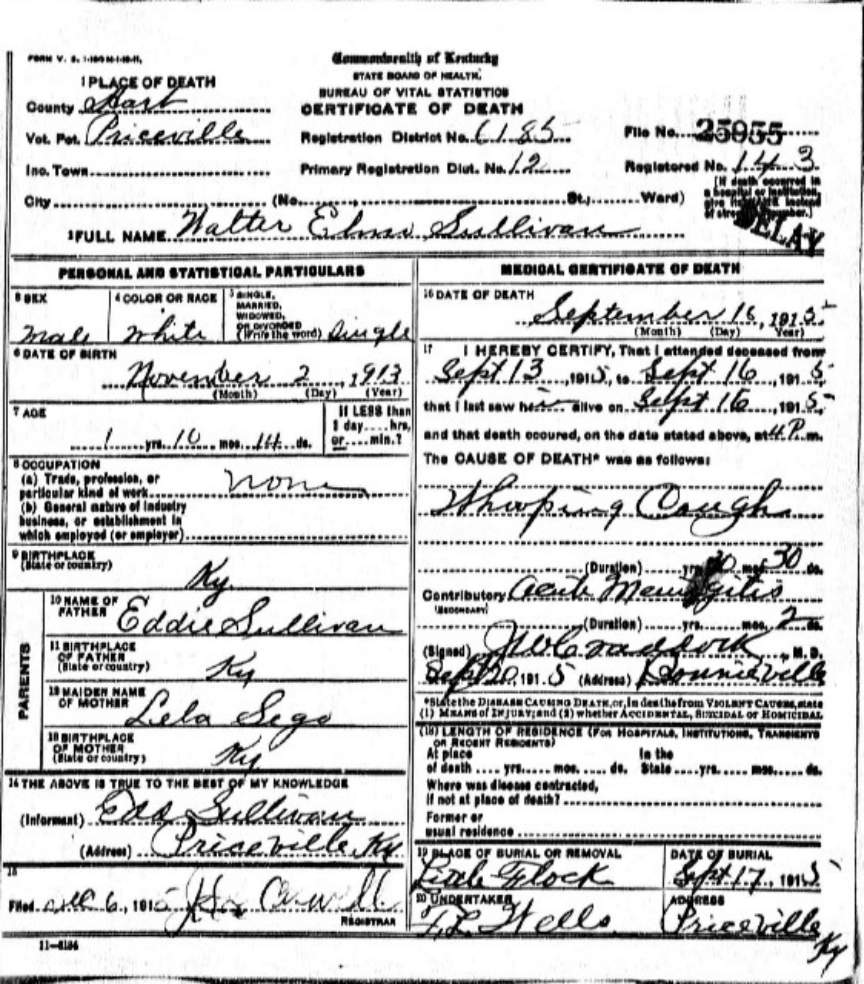 FORM V. S. 1-
Commonwealth of Kentucky
STATE BOARD OF HEALTH,
BUREAU OF VITAL STATISTICS
CERTIFICATE OF DEATH
1 PLACE OF DEATH
County Hart
Vot. Pct. Priceville
Registration District No. 6185
File No. 25955
Inc. Town
Primary Registration Dist. No. 12
Registered No. 143
City (No. St.; Ward)
[If death occurred in a hospital or institution, give its NAME instead of street and number.]
DELAY
2 FULL NAME Walter Sullivan
PERSONAL AND STATISTICAL PARTICULARS
3 SEX male
4 COLOR OR RACE White
5 SINGLE, MARRIED, WIDOWED, OR DIVORCED (Write the word) Single
6 DATE OF BIRTH
November 2, 1913
(Month) (Day) (Year)
7 AGE
1 yrs. 10 mos. 14 ds.
If LESS than 1 day....hrs. or....min.?
8 OCCUPATION
(a) Trade, profession, or particular kind of work none
(b) General nature of industry business, or establishment in which employed (or employer)
9 BIRTHPLACE (State or country)
Ky.
PARENTS
10 NAME OF FATHER Eddie Sullivan
11 BIRTHPLACE OF FATHER (State or country) Ky
12 MAIDEN NAME OF MOTHER Lela Sego
13 BIRTHPLACE OF MOTHER (State or country) Ky
14 THE ABOVE IS TRUE TO THE BEST OF MY KNOWLEDGE
(Informant) Edd Sullivan
(Address) Priceville Ky
15
Filed Dec 6, 1915
REGISTRAR
11-
MEDICAL CERTIFICATE OF DEATH
16 DATE OF DEATH
September 16, 1915
(Month) (Day) Year)
17 I HEREBY CERTIFY, That I attended deceased from
Sept 13, 1915, to Sept 16, 1915,
that I last saw him alive on Sept 16, 1915,
and that death occured, on the date stated above, at 4 P. m.
The CAUSE OF DEATH* was as follows:
Whooping Cough
(Duration) yrs. mos. 30 ds.
Contributory Acute Meningitis
(SECONDARY)
(Duration) yrs. mos. 2 ds.
(Signed) Craddock, M. D.
Sept 20 1915 (Address) Bonnieville
*State the DISEASE CAUSING DEATH, or, in deaths from VIOLENT CAUSES, state
(1) MEANS of INJURY; and (2) whether ACCIDENTAL, SUICIDAL or HOMICIDAL
(18) LENGTH OF RESIDENCE (FOR HOSPITALS, INSTITUTIONS, TRANSIENTS OR RECENT RESIDENTS)
At place of death .... yrs. .... mos. .... ds. In the State .... yrs. .... mos. .... ds.
Where was disease contracted,
If not at place of death?
Former or usual residence
19 PLACE OF BURIAL OR REMOVAL
Little Flock
DATE OF BURIAL
Sept 17, 1915
20 UNDERTAKER
Wells
ADDRESS
Priceville Ky